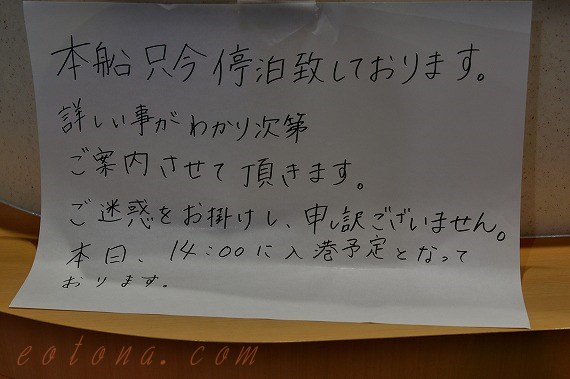 本船只今停泊致しております。
詳しい事がわかり次第
ご案内させて頂きます。
ご迷惑をお掛けし、申し訳ございません。
本日、14:00に入港予定となって
おります。
eotona.com